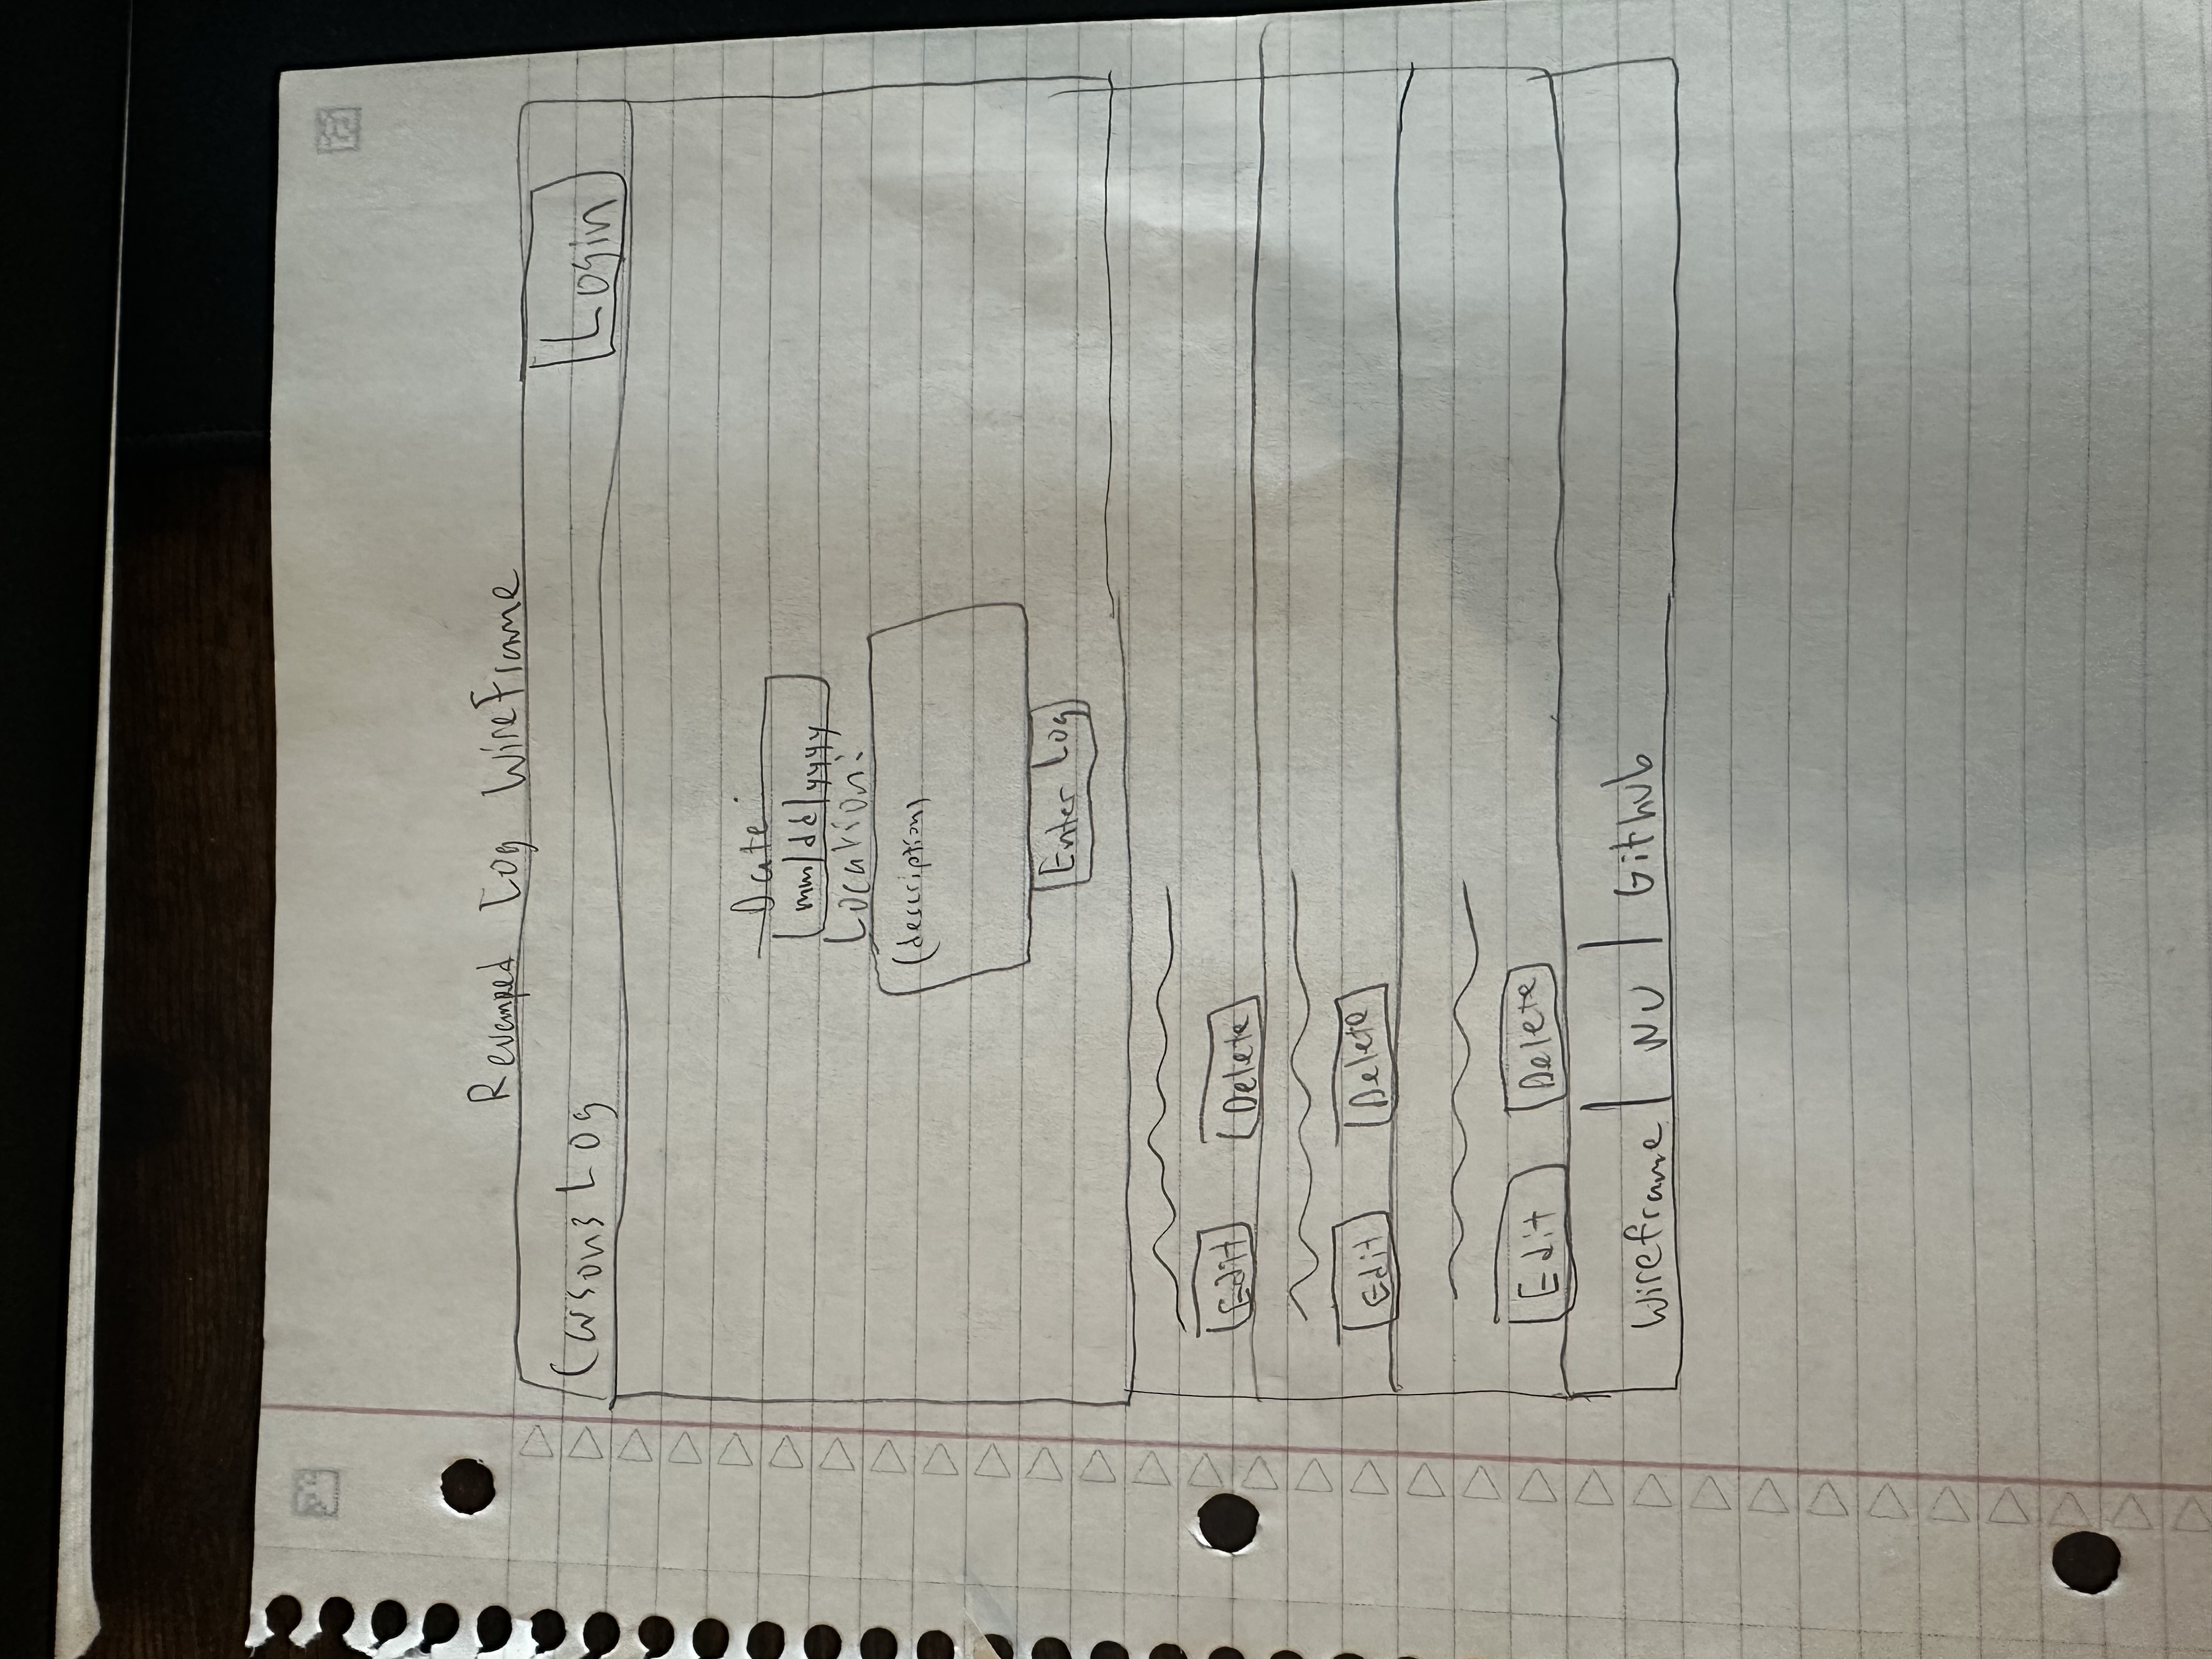 Revamped Log WireFrame
Carsons Log
Login
Date:
mm/dd/yyyy
Location:
(description)
Enter Log
Edit Delete
Edit Delete
Edit Delete
Wireframe | NU | Github